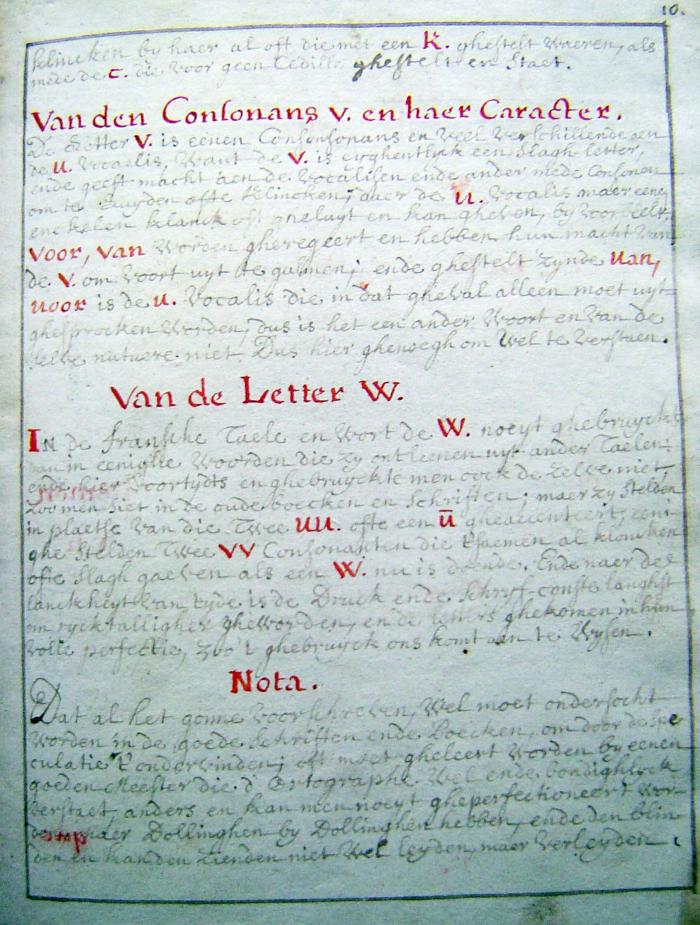 10.
klincken by haer al oft die met een K. ghestelt waeren, als
mede de c. die voor geen Cedille ghestelt en staet.
Van den Consonans v. en haer Caracter.
De Letter v. is eenen Consonans en veel verschillende aen
de u. Vocalis, Want de v. is eyghentlyck een slagh letter,
ende geeft macht aen de Vocalisen ende ander mede Consonan
om te Luyden ofte klincken; daer de u. Vocalis maer eene
enckelen klanck oft gheluyt en kan gheven, by voorbeelt,
voor, van Worden gheregeert en hebben hun macht van
de v. om voort uyt te galmen; ende ghestelt zynde uan,
uoor is de u. Vocalis die in dat gheval alleen moet uyt
ghesprocken Worden, dus is het een ander Woort en van de
selve natuere niet. Dus hier ghenoegh om Wel te verstaen.
Van de Letter W.
In de fransche Taele en Wort de W. noeyt ghebruyckt
dan in eenighe Woorden die zy ontleenen uyt ander Taelen:
ende hier voortydts en ghebruyckte men oock de zelve niet,
zoo men siet in de oude boecken en schriften; maer zy stelden
in plaetse van die twee uu. ofte een ū gheaccenteert, eeni-
ghe stelden twee VV Consonanten die t'saemen al kloncken
ofte slagh gaeven als een W. nu is doende. Ende naer de
lanckheyt van tyde is de Druck ende schryf-conste langhst
om ryckfalligher gheworden, en de letters ghekomen in hun
volle perfectie, zoo 't ghebruyck ons komt aen te Wysen.
Nota.
Dat al het gonne voorschreven, Wel moet ondersocht
Worden in de goede schriften ende Boecken, om door de spe
culatie t'ondervinden; oft moet gheleert Worden by eenen
goeden Meester die d'Ortographe Wel ende bondighlyck
verstaet, anders en kan men noeyt gheperfectioneert Wor-
den, maer Dollinghen by Dollinghen hebben, ende den blin
den en kan den zienden niet Wel leyden, maer verleyden.